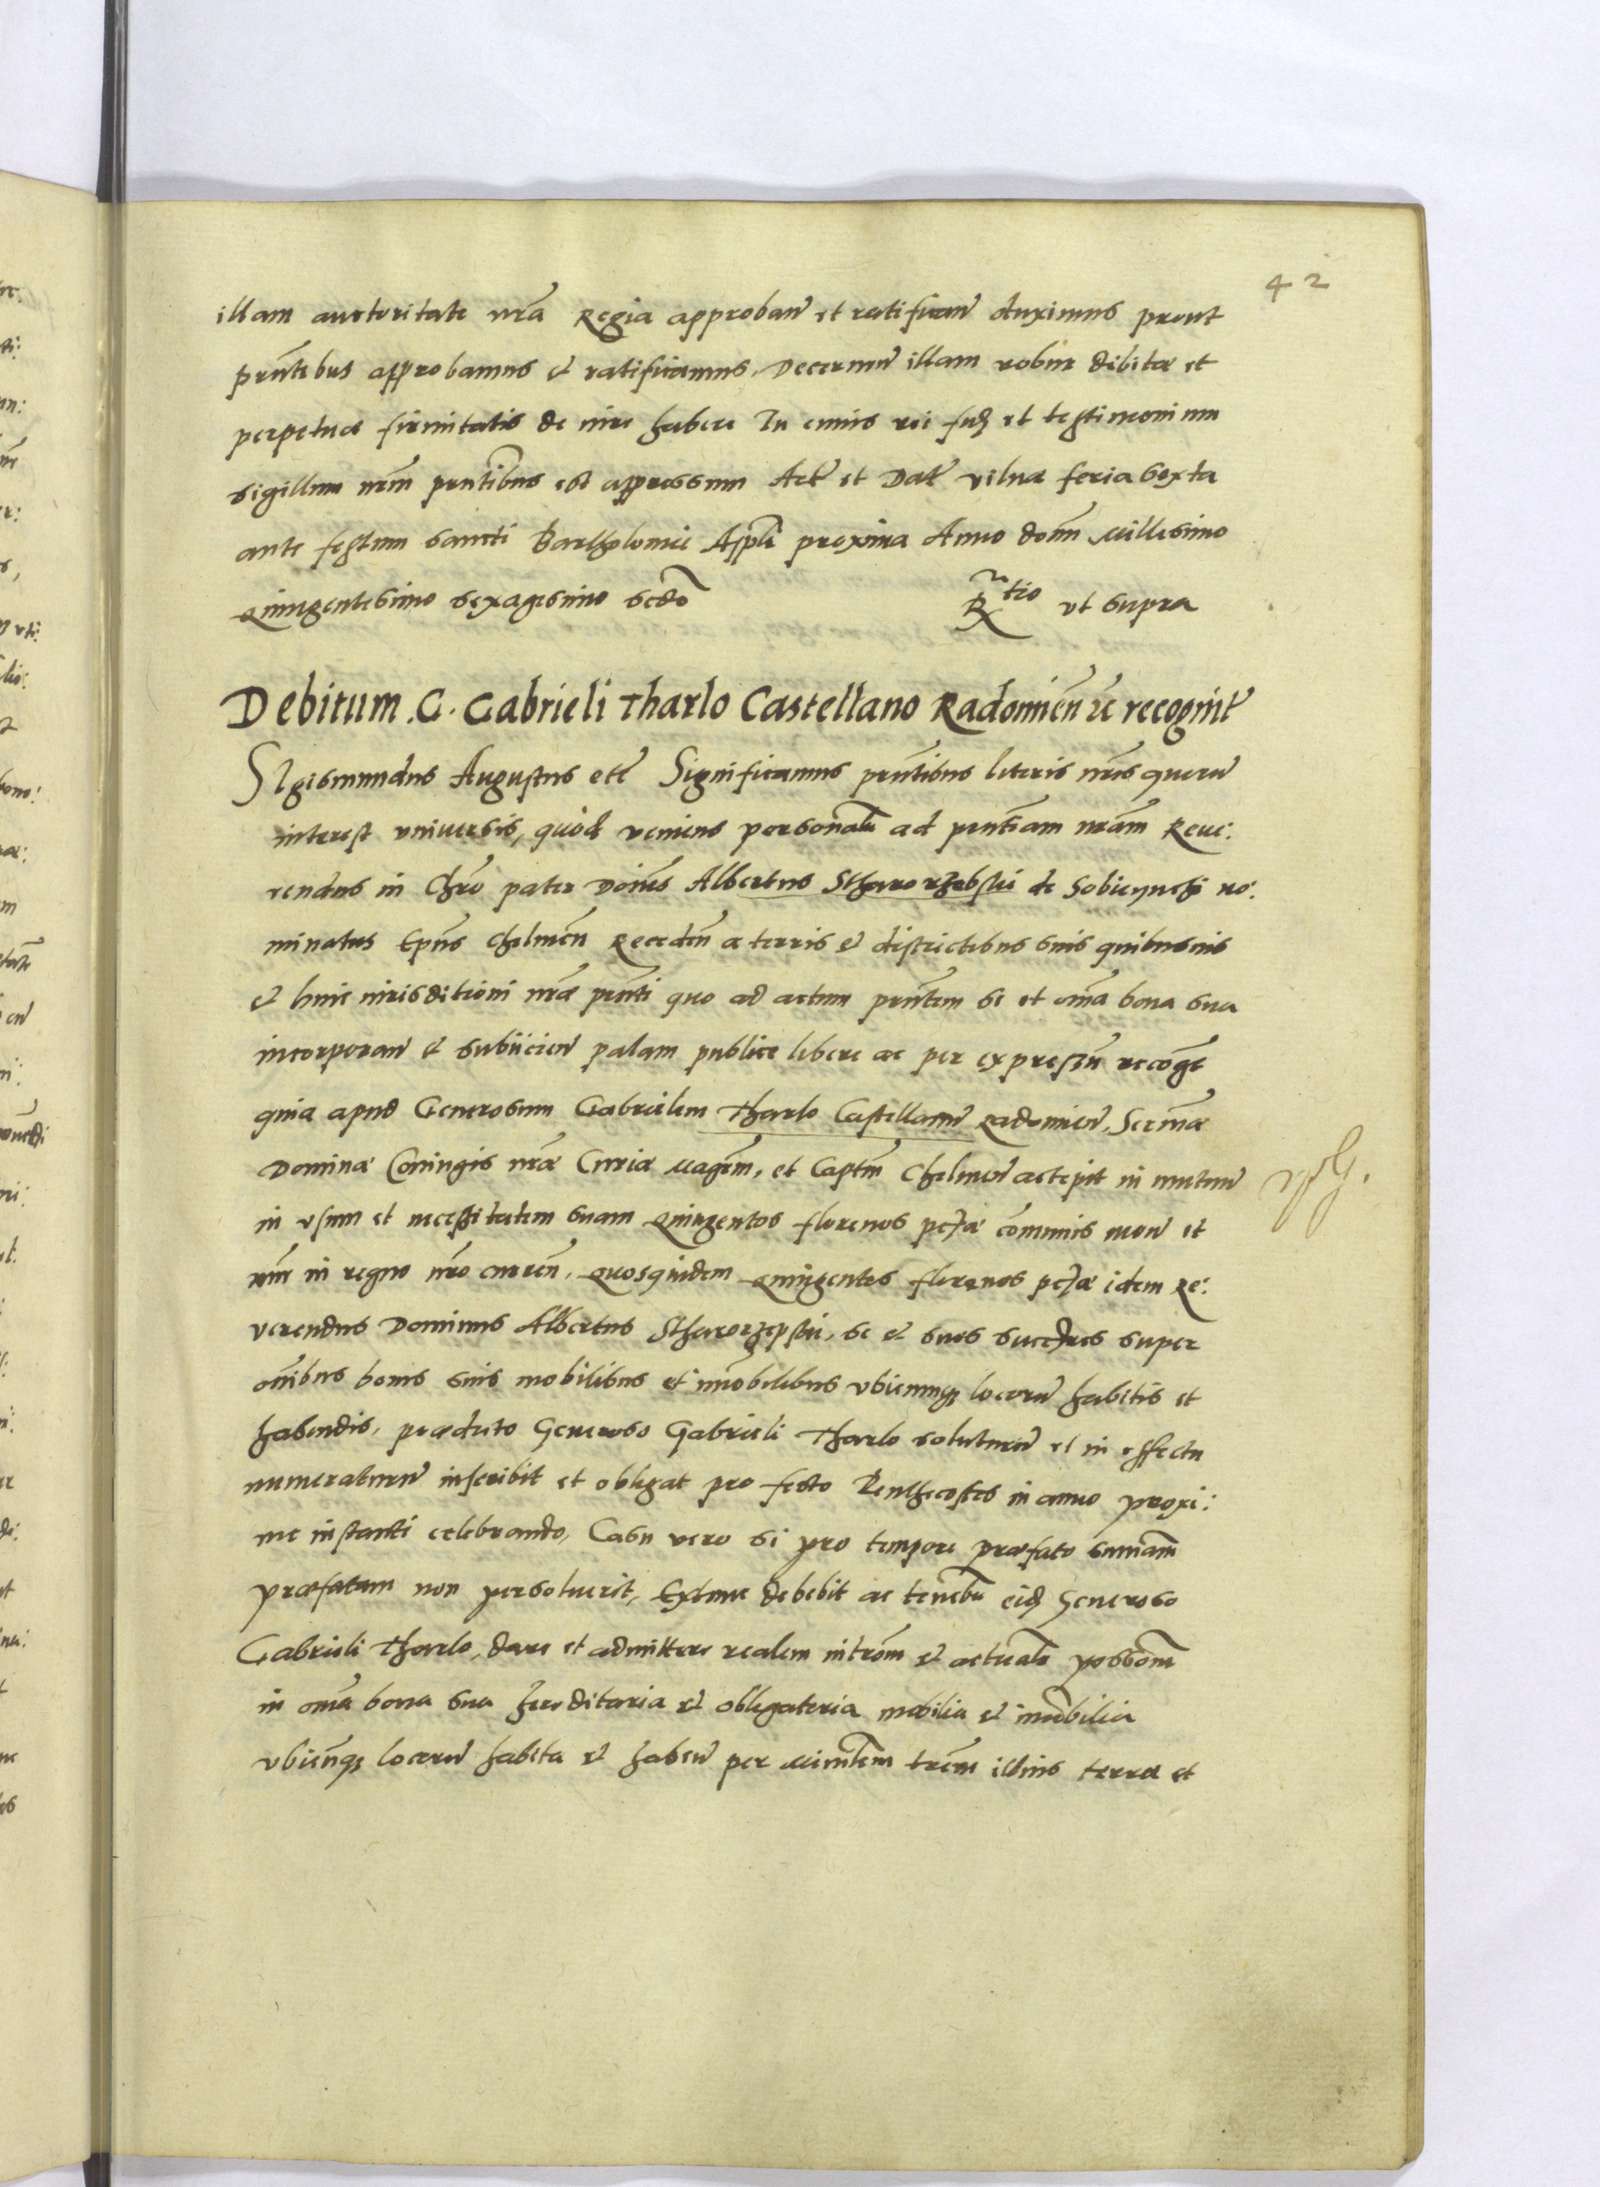 42
illam auctoritate nrã Regia approbañ et ratificañ duximus prout
prñtibus approbamus et ratificamus, Decernen̄ illam robur debitæ et
perpetuæ firmitatis de iure habere In cuius rei fidẽ et testimonium
sigillum nrm̃ prntibus est appressum Act̃ et Dat̃ vilnæ feria sexta
ante festum sancti Bartholomei Aplĩ proxima Anno domĩ Millesimo
Quingentesimo sexagesimo scdõ
R̃tio ut supra
Debitum .G. Gabrieli Tharlo Castellano Radomień &c recognit̃
SIgismundus Augustus etc̃ Significamus prñtibus literis nrĩs quorũ
interest vniuersis, quòd veniens personalr̃ ad pñtiam nrãm Reue:
rendus in Chrõ pater Doñus Albertus Stharorzebski de Sobieynchi no:
minatus Epũs Chelmeñ Recedeñ a terris et districtibus suis quibusuis
et huic iurisditioni nrẽ prñti quo ad actum prñtem se et oĩa bona sua
incorporañ et subiicień palam publice libere ac per expressũ recog̃t
quia apud Generosum Gabrielem Tharlo Castellanũ Radomień, Serm̃æ
Dominæ Coniugis nrẽ Curiæ Magrm̃, et Captm̃ Chelmeñ accepit in mutuũ
in vsum et necessitatem suam Quingentos florenos pcĩæ communis mon̄ et
nũi in regno nrõ curreñ, Quosquidem Quingentos florenos pcĩæ idem Re:
verendus Dominus Albertus Stharorzepski, se et suos succẽres super
oĩbus bonis suis mobilibus et im̃obilibus vbicunq₃ locorũ habitis et
habendis, prædicto Generoso Gabrieli Tharlo soluturũ et in effectu
numeraturũ inscribit et obligat pro festo Penthecostes in anno proxi:
me instanti celebrando, Casu vero si pro tempore præfato sum̃am
præfatam non persoluerit, Extunc debebit ac tenebr̃ eidẽ Generoso
Gabrieli Tharlo, dare et admittere realem intrõm et actualẽ possõnẽ
in oĩa bona sua hereditaria et obligatoria mobilia et im̃obilia
vbicũq₃ locorũ habita et habeñ per Ministlem̃ trẽm illius terræ et